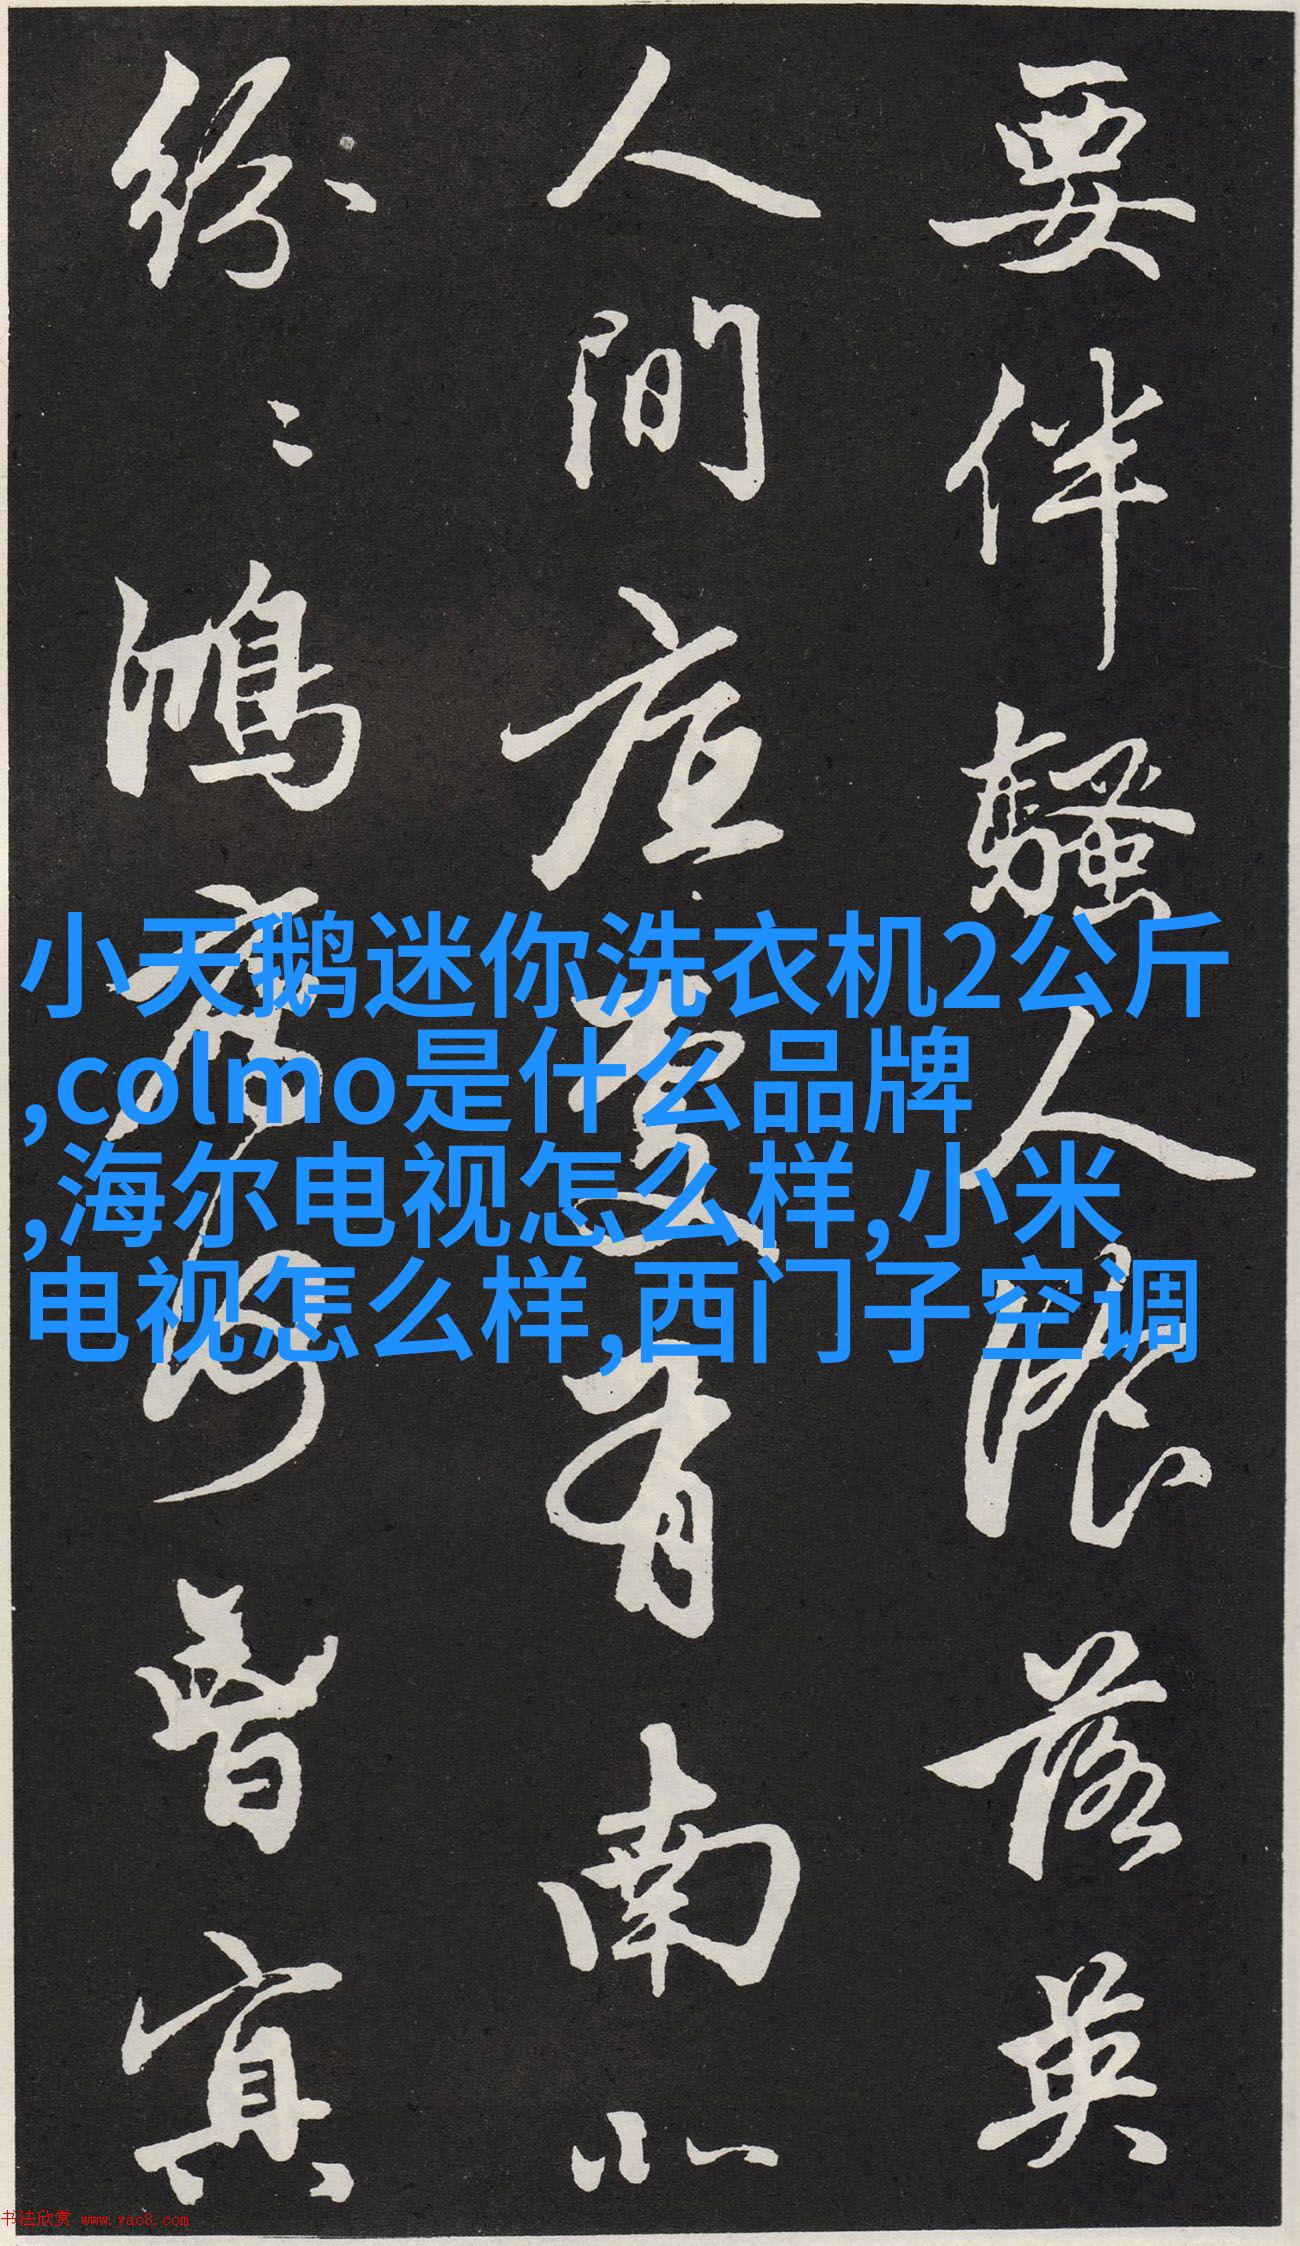 要伴騷人餐落英
人間底處有南北
紛〻鴻雁何曾冥
小天鹅迷你洗衣机2公斤
,colmo是什么品牌
,海尔电视怎么样,小米
电视怎么样,西门子空调
书法欣赏 www.yac8.com